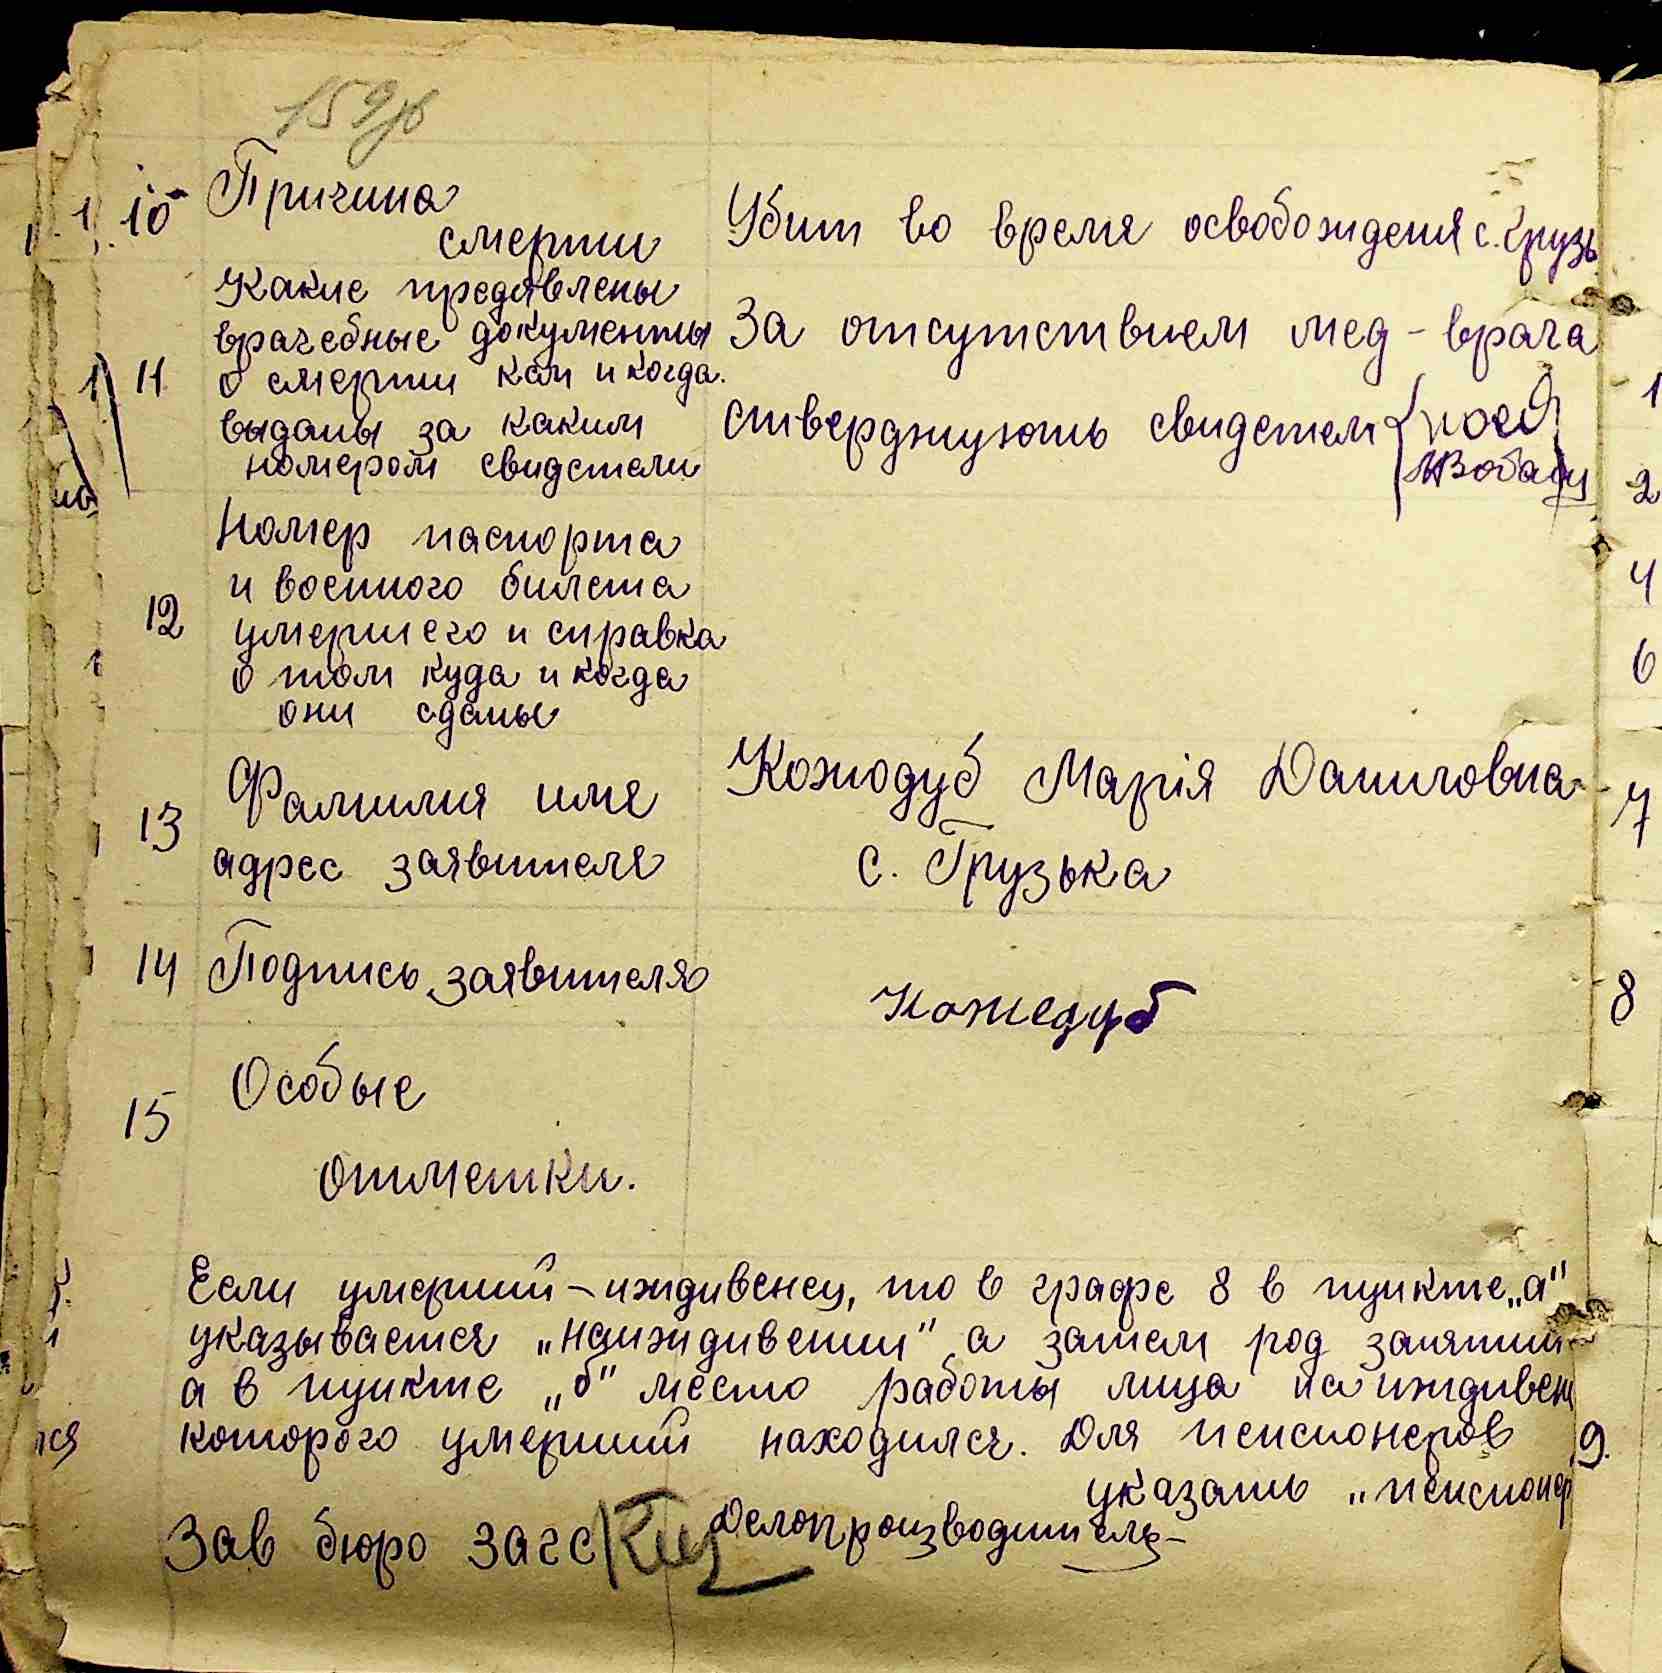 159
10 Причина
смерти
Убит во время освобождения с. Грузь
Какие предявлены
врачебные документы
11 о смерти кем и когда
выданы за каким
номером свидетели
За отсутствием мед-врача
стверджують свидетели
Номер паспорта
и военного билета
12 умершего и справка
о том куда и когда
они сданы
13 Фамилия имя
адрес заявителя
Кожодуб Марія Даниловна
с. Грузька
14 Подпись заявителя
Кожедуб
15 Особые
отметки.
Если умерший - иждивенец, то в графе 8 в пункте „а"
указывается „наиждивении" а затем род занятии
а в пункте „б" место работы лица на иждивен
которого умерший находился. Для пенсионеров
указать „пенсионер
Зав бюро загс Делопроизводитель
1
2
4
6
7
8
9.